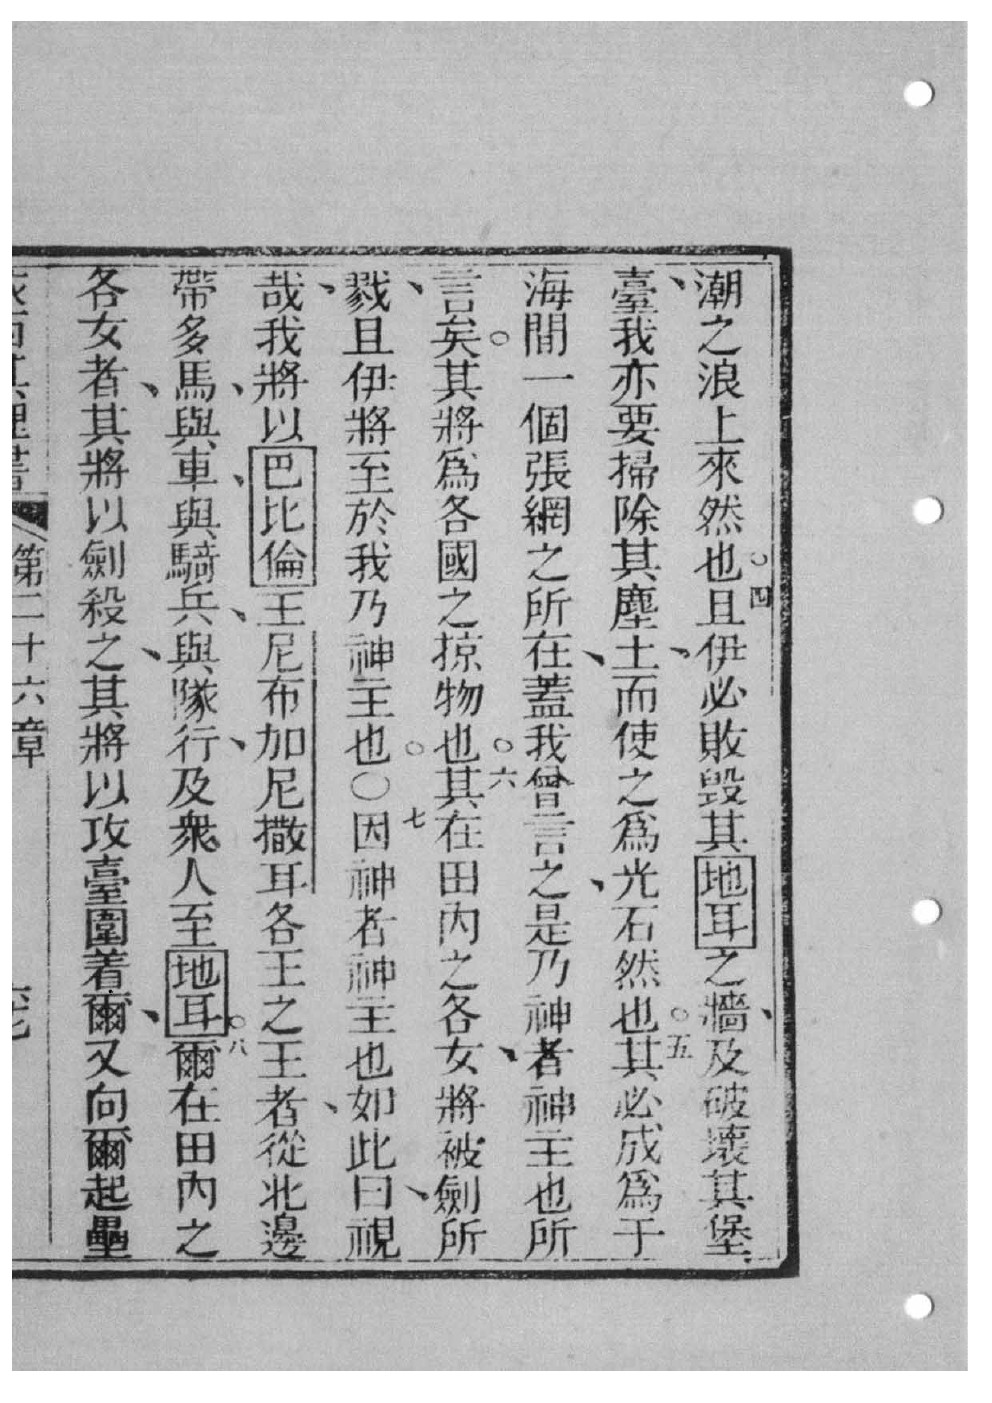 潮之浪上來然也○四且伊必敗毀其地耳之牆、及破壞其堡
臺、我亦要掃除其塵土、而使之爲光石然也○五其必成爲于
海間一個張網之所在、蓋我曾言之、是乃神者神主也所
言矣○其將爲各國之掠物也○六其在田內之各女、將被劍所
戮、且伊將至於我乃神主也○七○因神者神主也如此曰、視
哉、我將以巴比倫王尼布加尼撒耳各王之王者、從北邊
帶多馬、與車、與騎兵、與隊行、及衆人至地耳○八爾在田內之
各女者、其將以劍殺之、其將以攻臺圍着爾、又向爾起壘
第二十六章